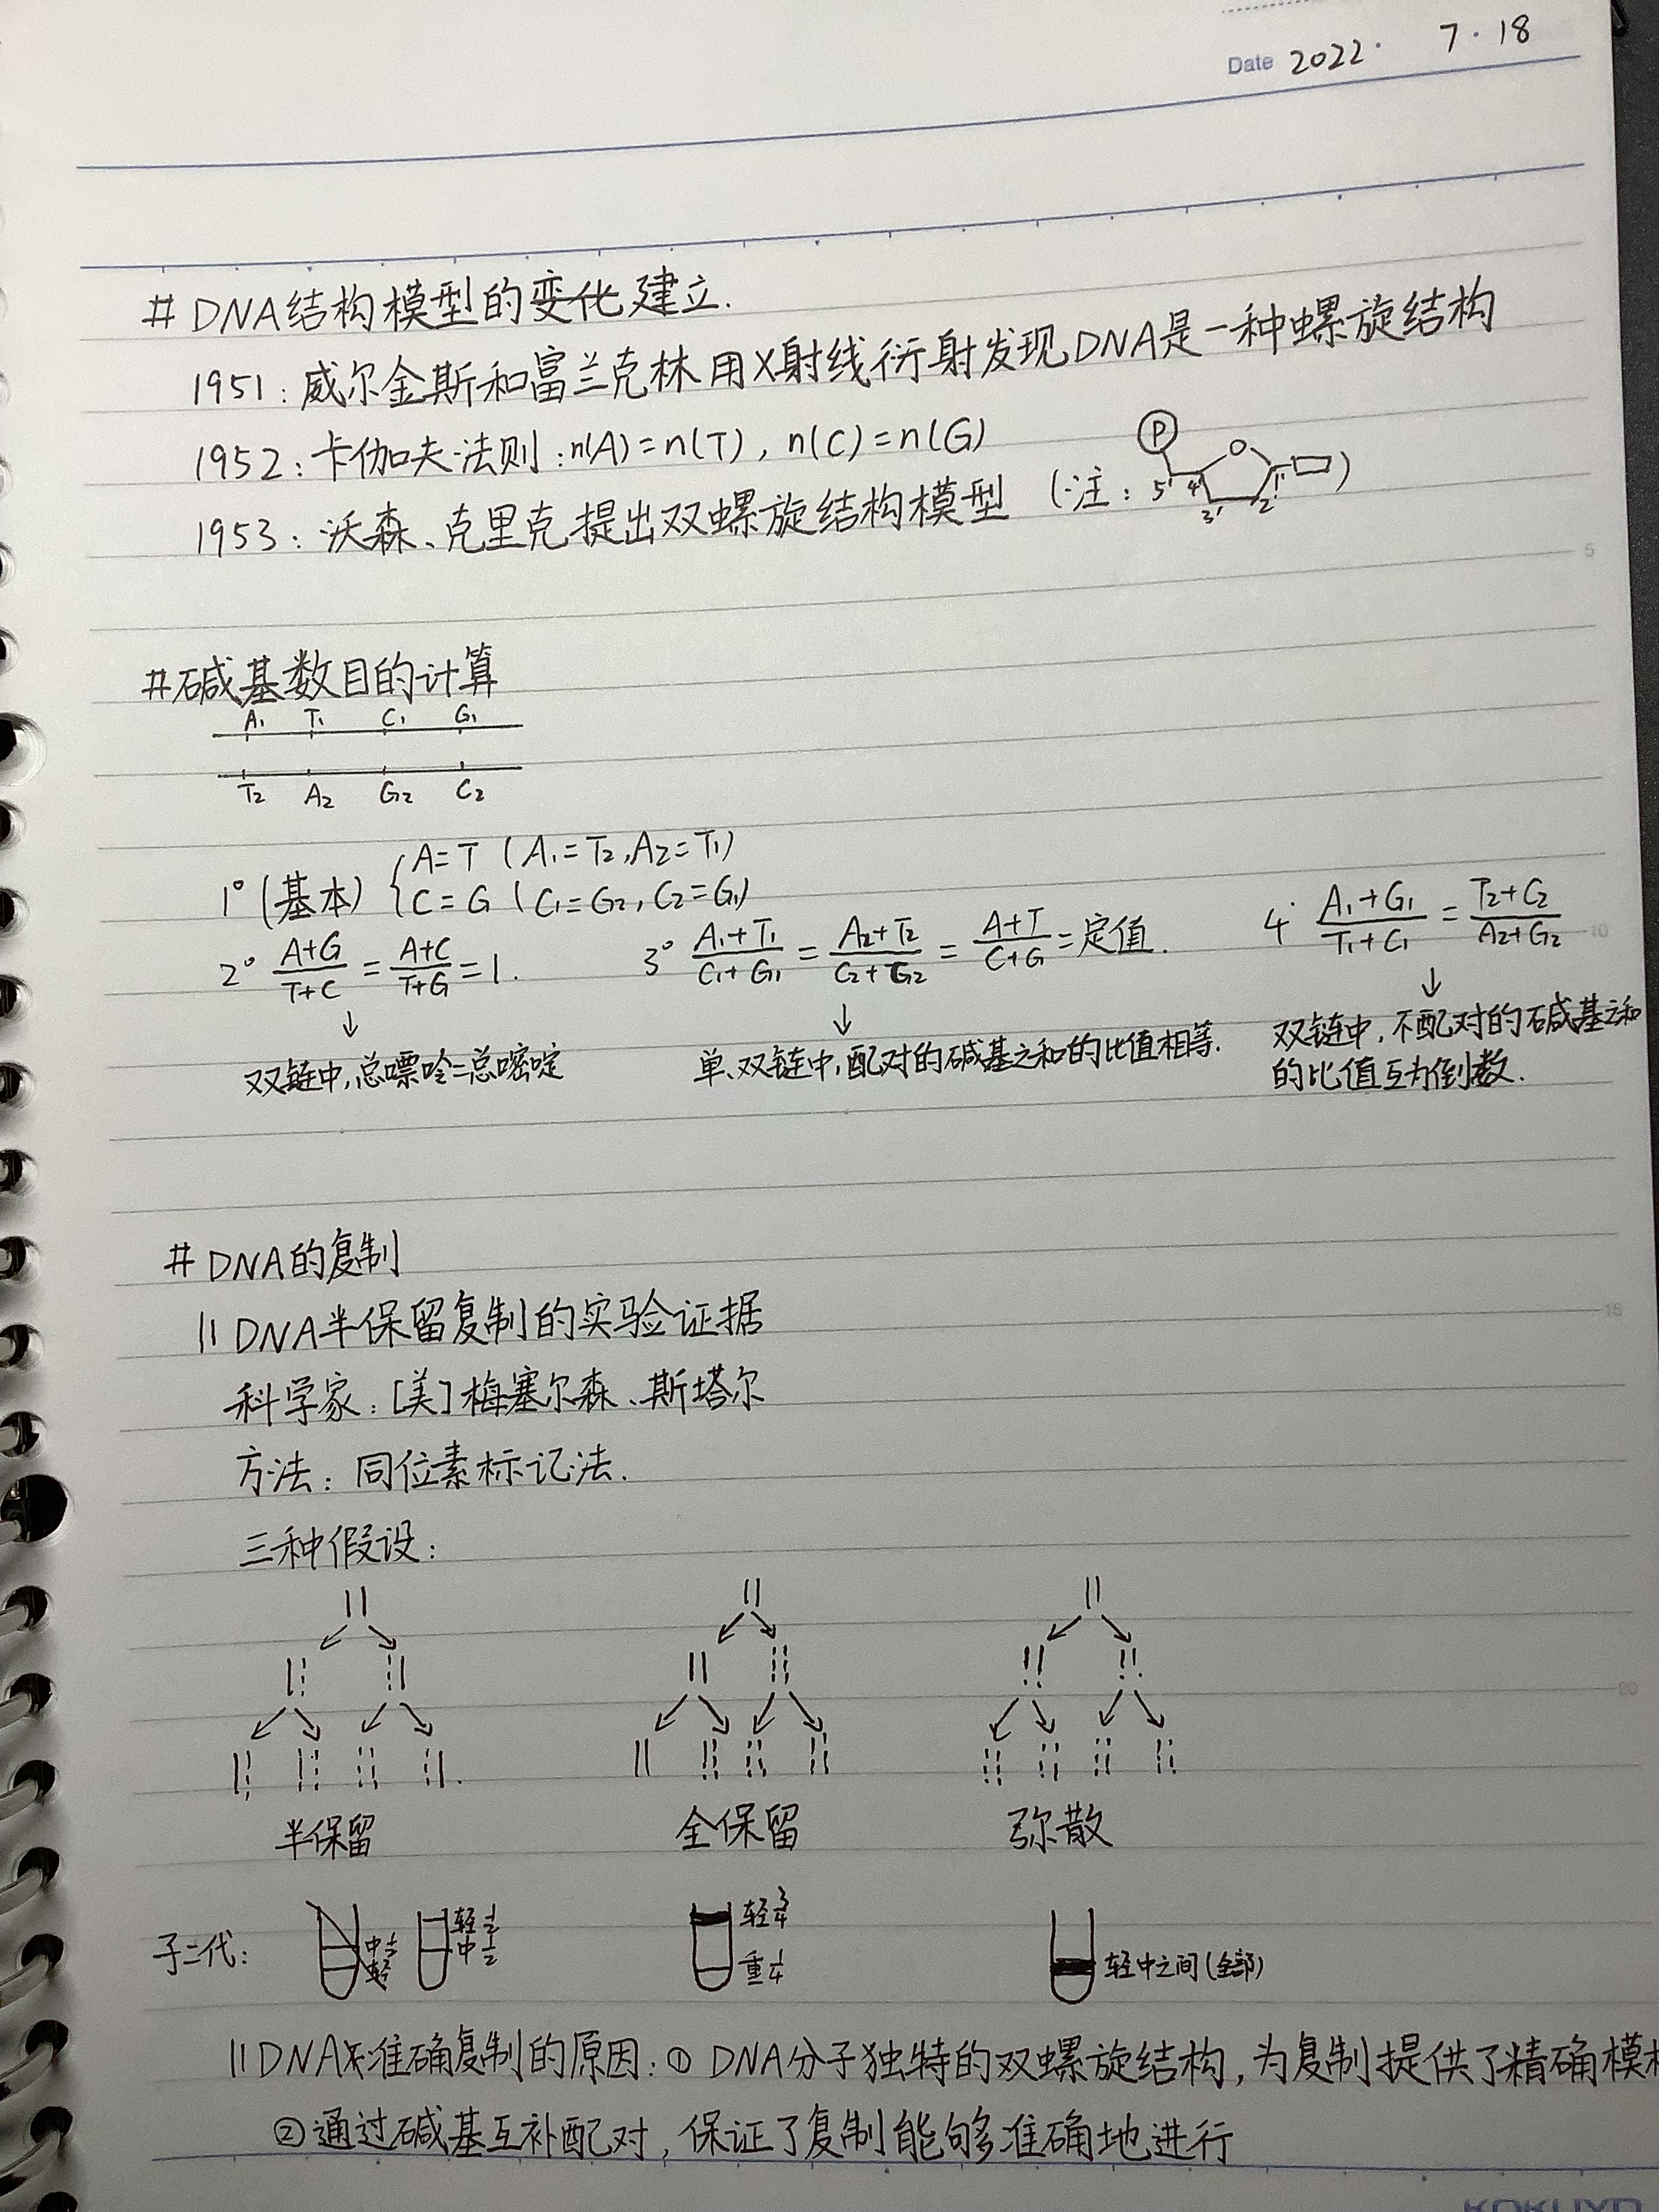 Date 2022. 7.18
# DNA结构模型的变化建立.
1951：威尔金斯和富兰克林用X射线衍射发现DNA是一种螺旋结构
1952：卡伽夫法则：n(A)=n(T)，n(C)=n(G)
1953：沃森、克里克提出双螺旋结构模型 (注：P O 5' 4' 3' 2' 1')
5
#碱基数目的计算
A₁ T₁ C₁ G₁
T₂ A₂ G₂ C₂
1° (基本) { A=T (A₁=T₂,A₂=T₁)
C=G (C₁=G₂,C₂=G₁)
2° (A+G)/(T+C) = (A+C)/(T+G) = 1. 3° (A₁+T₁)/(C₁+G₁) = (A₂+T₂)/(C₂+G₂) = (A+T)/(C+G) = 定值. 4° (A₁+G₁)/(T₁+C₁) = (T₂+C₂)/(A₂+G₂)
10
↓ ↓ ↓
双链中,总嘌呤=总嘧啶 单、双链中,配对的碱基之和的比值相等. 双链中,不配对的碱基之和
的比值互为倒数.
# DNA的复制
|| DNA半保留复制的实验证据
15
科学家：[美]梅塞尔森、斯塔尔
方法：同位素标记法.
三种假设：
20
半保留 全保留 弥散
子二代： 中½ 轻½ 中½ 轻¾ 重¼ 轻中之间(全部)
|| DNA准确复制的原因：① DNA分子独特的双螺旋结构,为复制提供了精确模
②通过碱基互补配对,保证了复制能够准确地进行
KOKUYO